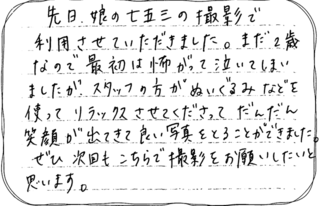 先日、娘の七五三の撮影で
利用させていただきました。まだ2歳
なので最初は怖がって泣いてしまい
ましたが、スタッフの方がぬいぐるみなどを
使ってリラックスさせてくださって だんだん
笑顔が出てきて良い写真をとることができました。
ぜひ 次回も こちらで撮影をお願いしたいと
思います。